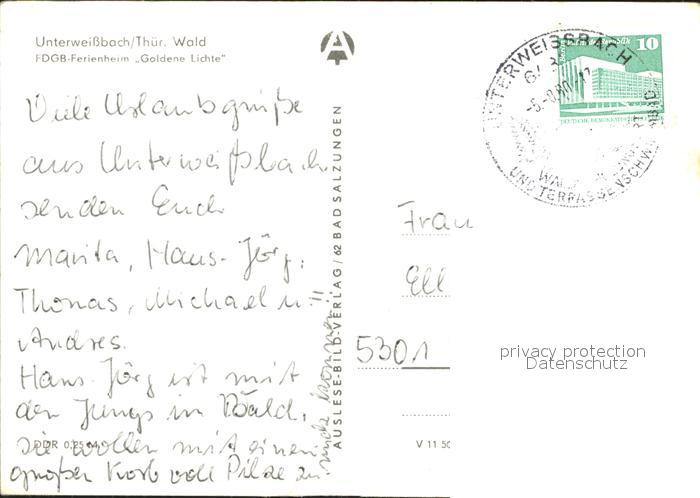 Unterweißbach/Thür. Wald
FDGB-Ferienheim „Goldene Lichte"
Viele Urlaubsgrüße
aus Unterweißbach
senden Euch
Marita, Hans-Jörg,
Thomas, Michael u.
Andres.
Hans-Jörg ist mit
den Jungs im Wald,
sie wollen mit einem
großen Korb voll Pilze zu-
rück kommen!!
DDR 0,25
AUSLESE-BILD-VERLAG/62 BAD SALZUNGEN
10
DEUTSCHE DEMOKRATISCHE
UNTERWEISSBACH
WALD
UND TERRASSENSCHWIMMBAD
Frau
Ell
5301
V 11 50
privacy protection
Datenschutz